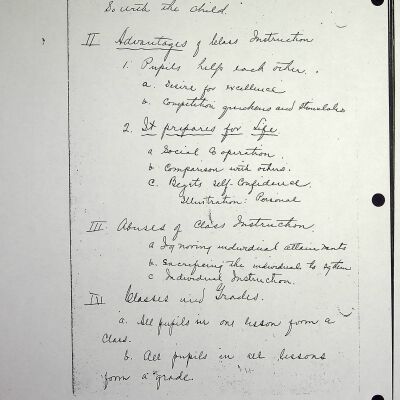 So with the child.
II Advantages of Class Instruction
1. Pupils help each other.
a. Desire for excellence
b. Competition quickens and stimulates
2. It prepares for Life
a Social Coöperation.
b Comparison with others.
c. Begets self-Confidence.
Illustration: Personal
III Abuses of Class Instruction.
a Ignoring individual attainments
b. Sacrificing the individual to system
c Individual Instruction.
IV Classes and Grades.
a. All pupils in one lesson form a
Class.
b. All pupils in all lessons
form a grade.